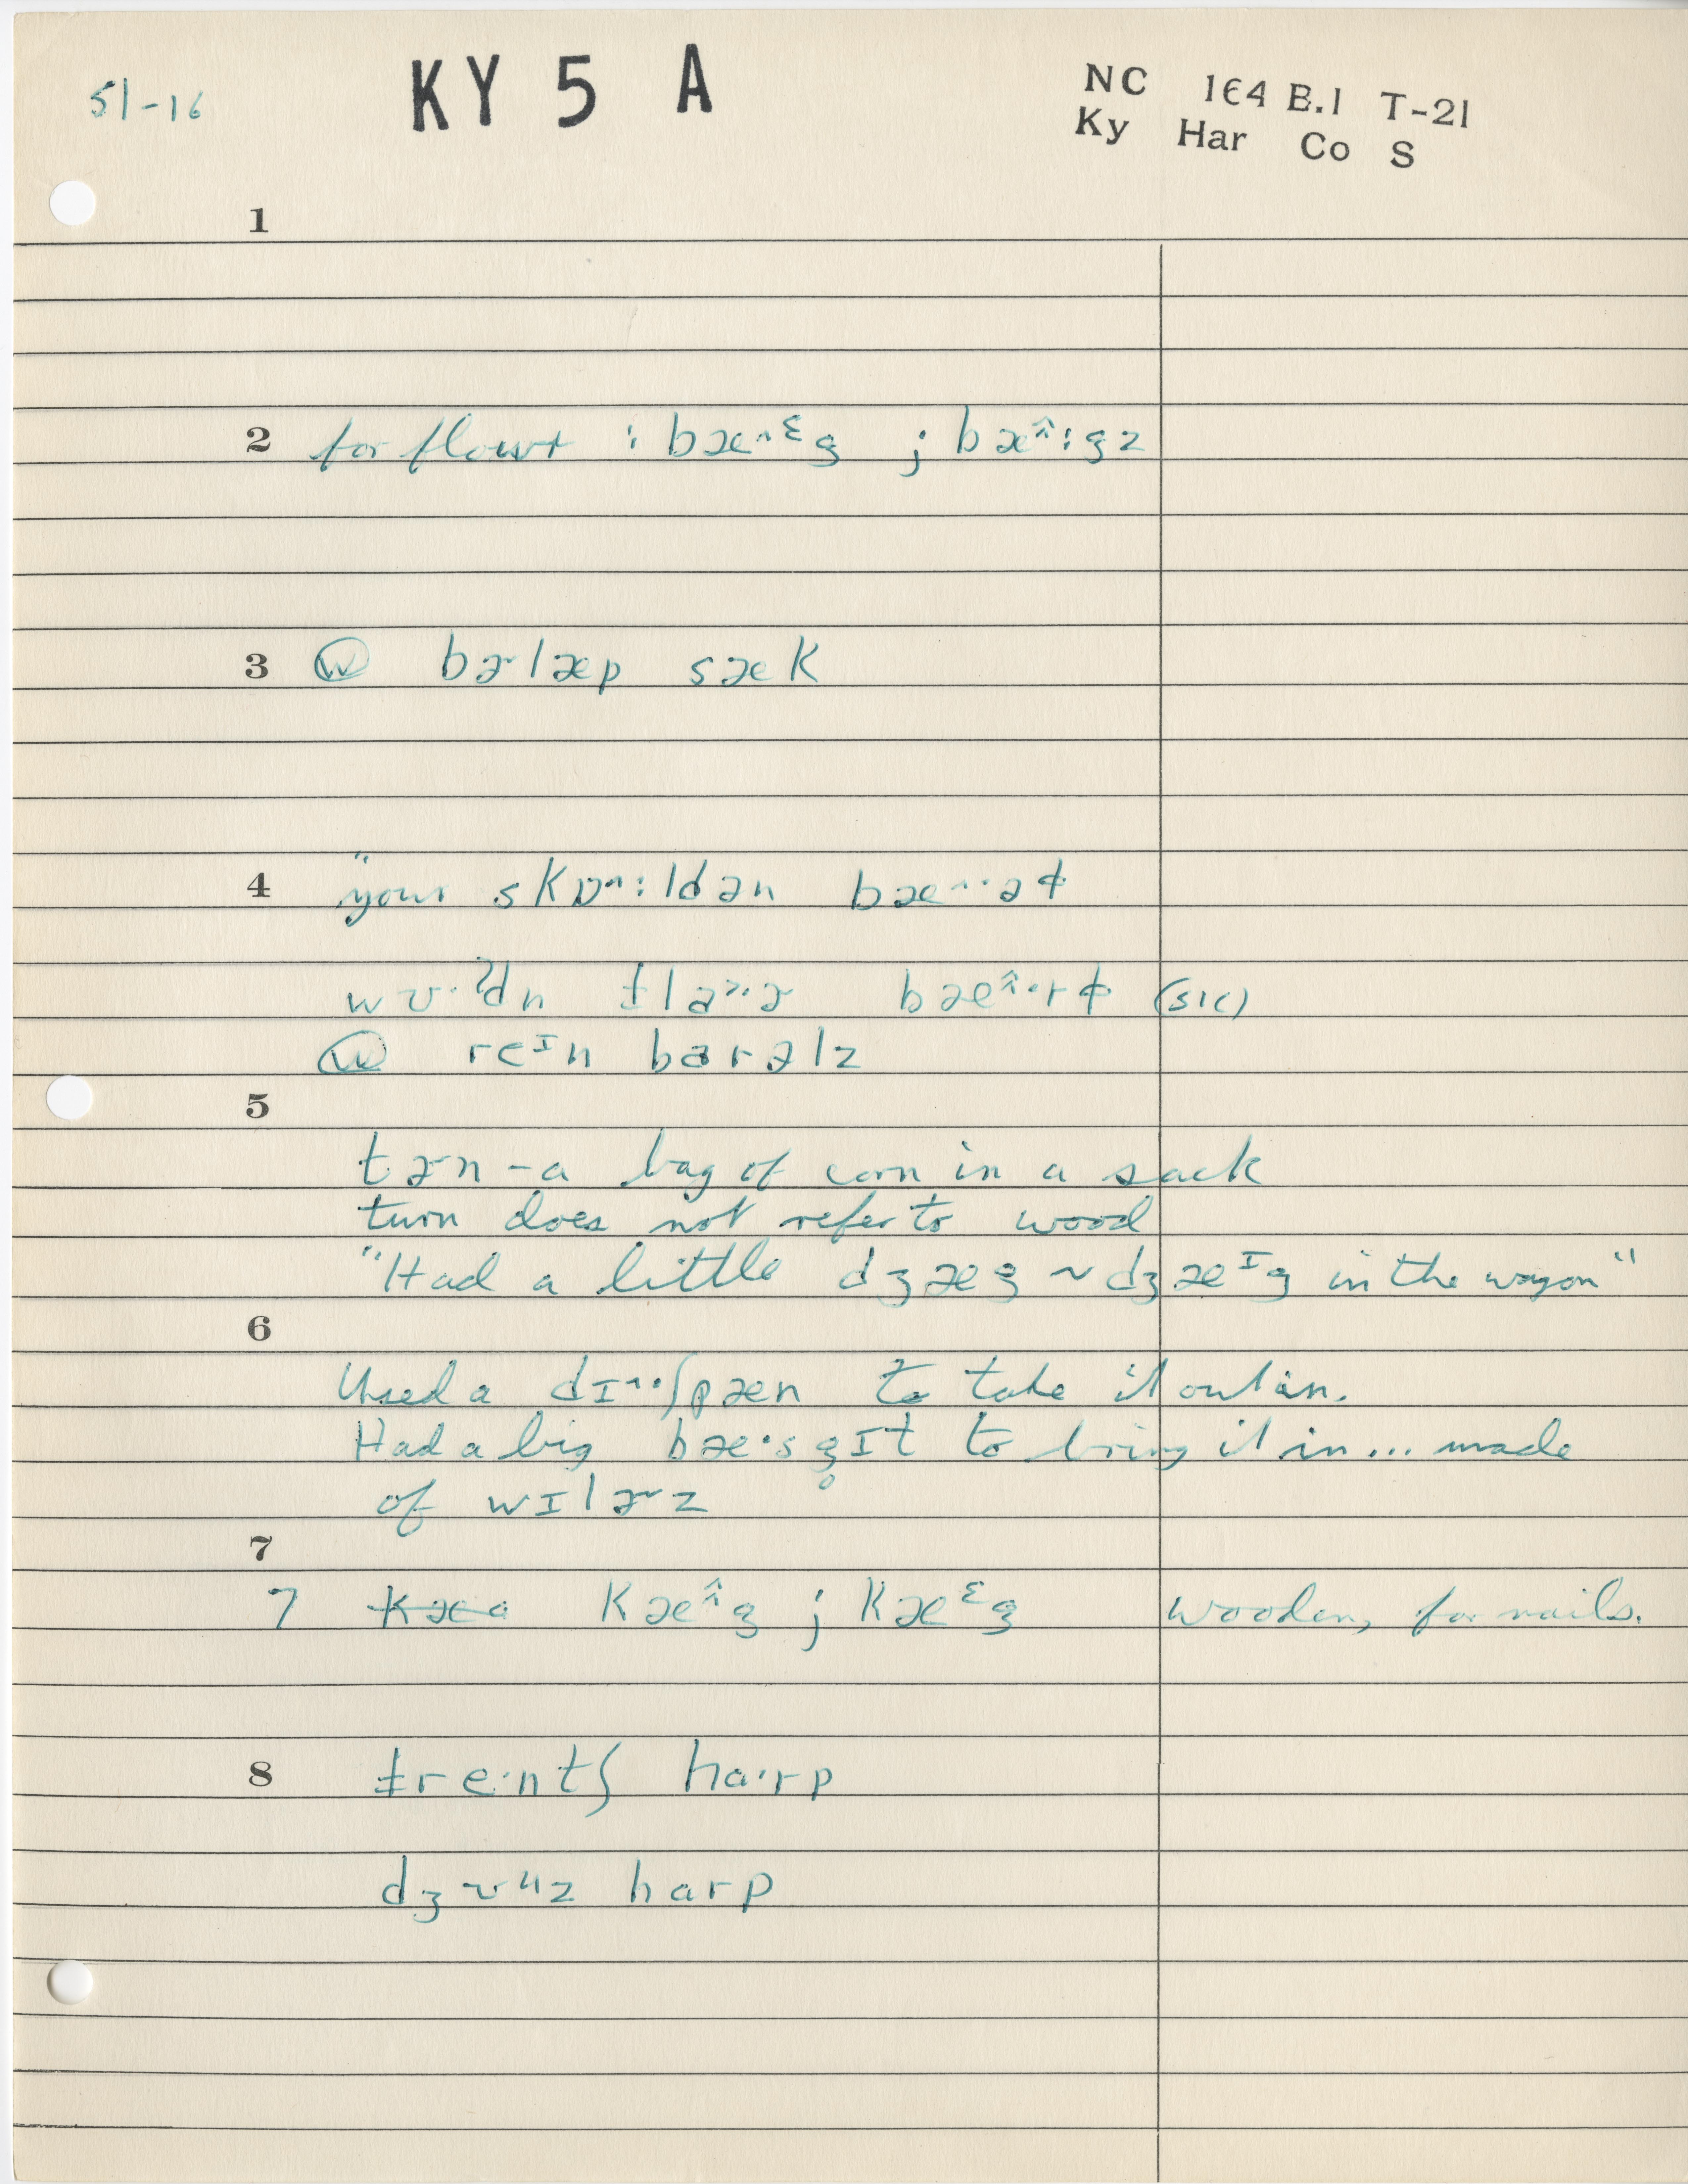 51-16 KY 5 A NC 164 B.1 T-21
Ky Har Co S
1
2 for flour : bæ˄ᵋg ; bæ˄:gz
3 ⓦ bɚlæp sæk
4 "your skɒ˄:ldən bæ˄·ə
wʊ·ʔdn flaɚ bæ˄·r (sic)
ⓦ reᴵn barəlz
5
tɚn - a bag of corn in a sack
turn does not refer to wood
"Had a little dʒæg ~ dʒæᴵg in the wagon"
6
Used a dɪ˄·ʃpæn to take it out in.
Had a big bæ·sg̥ɪt to bring it in... made
of wɪlɚz
7
7 kæ˄g ; kæᵋg wooden, for nails.
8 fre·ntʃ ha·rp
dʒ harp